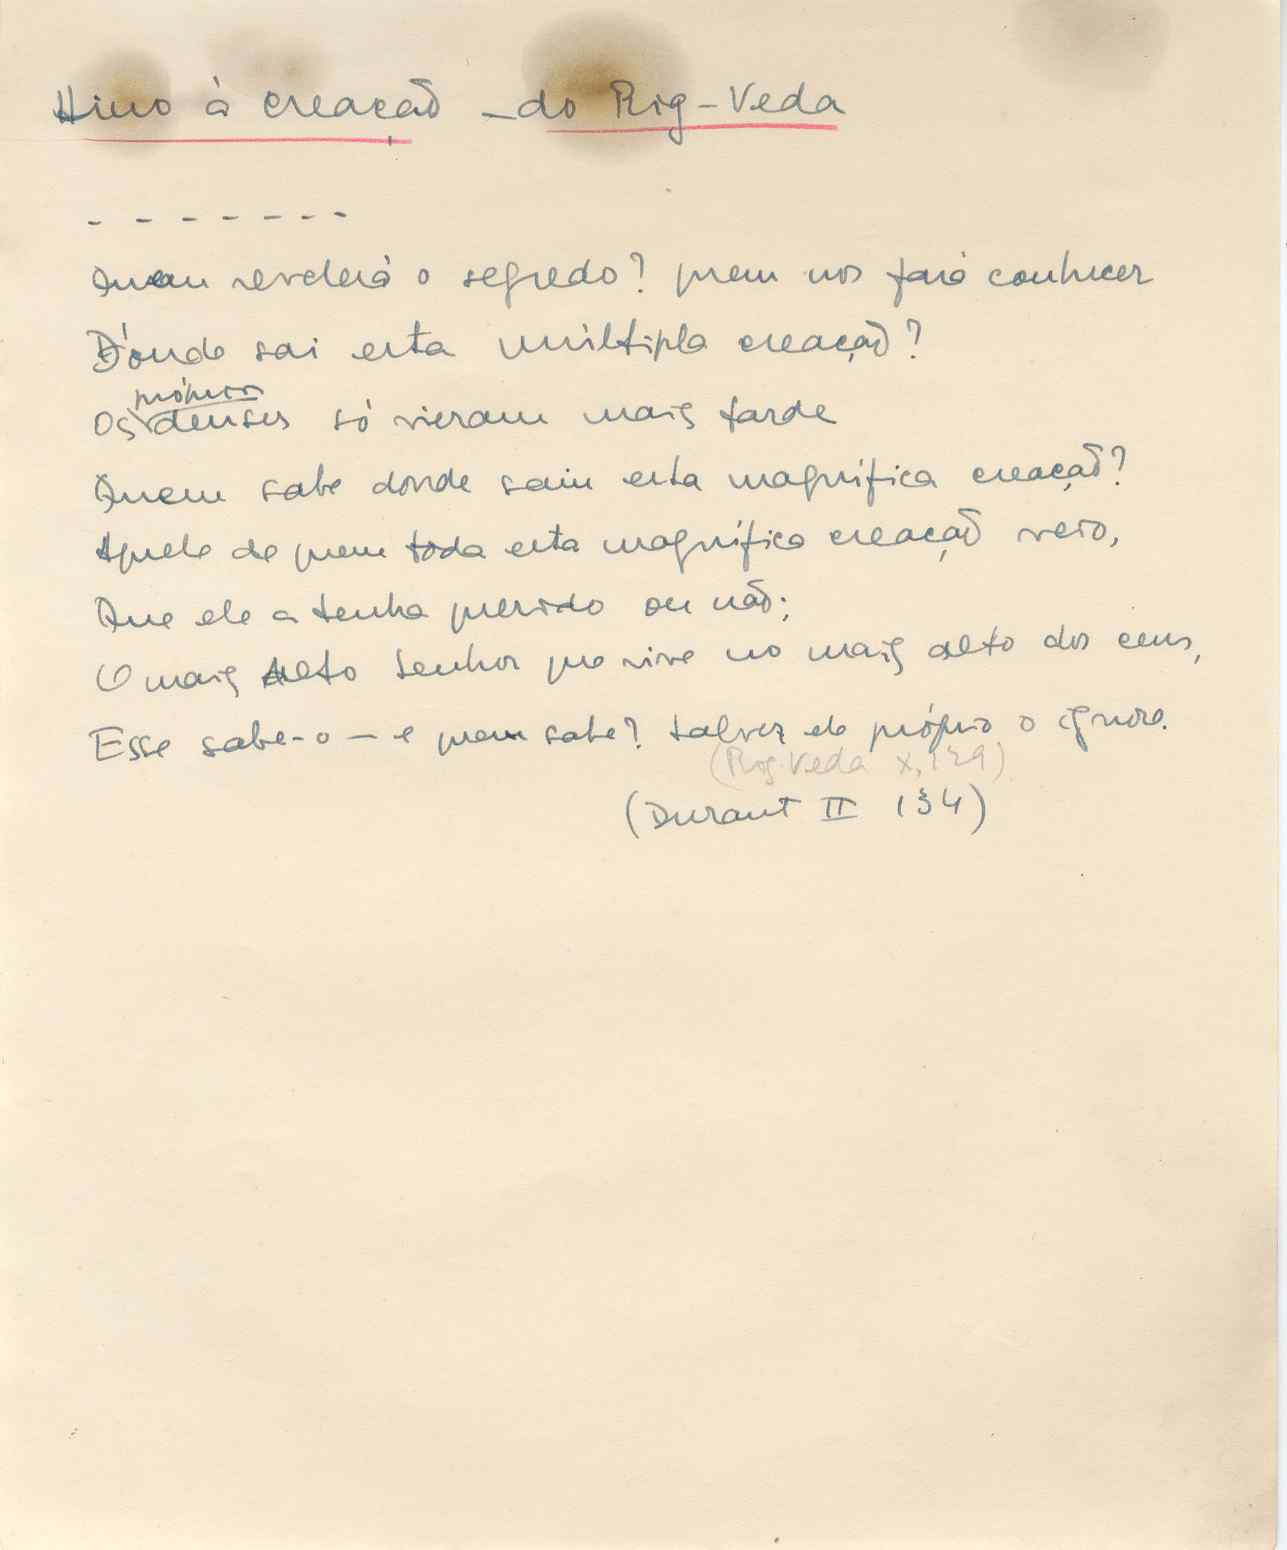 Hino à creação – do Rig-Veda
- - - - - - -
Quem revelará o segredo? quem nos fará conhecer
D'onde sai esta múltipla creação?
próprios
Os deuses só vieram mais tarde
Quem sabe donde saiu esta magnífica creação?
Aquele de quem toda esta magnífica creação veio,
Que ele a tenha querido ou não;
O mais Alto Senhor que vive no mais alto dos ceus,
Esse sabe-o – e quem sabe? talvez ele próprio o ignore.
(Rig. Veda X, 129)
(Durant II 134)